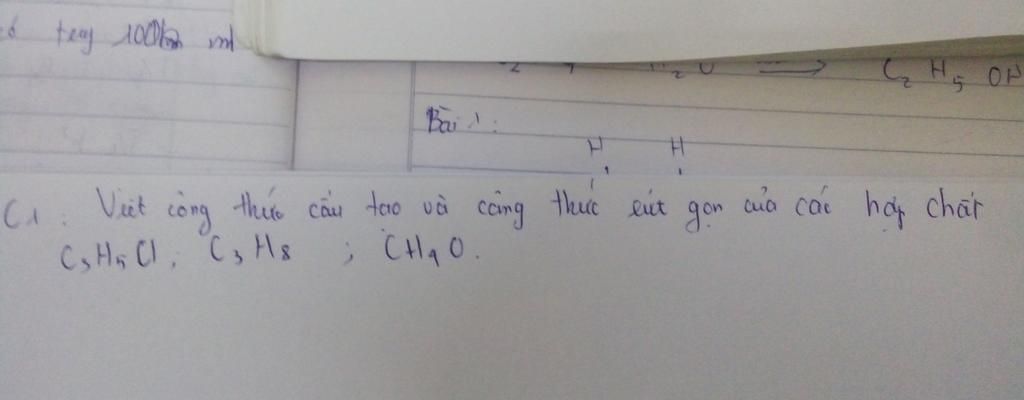 100 ml
C₂ H₅ OH
Bài 1:
H H
C1: Viết công thức cấu tạo và công thức rút gọn của các hợp chất
C₃H₅Cl; C₃H₈ ; CH₄O.